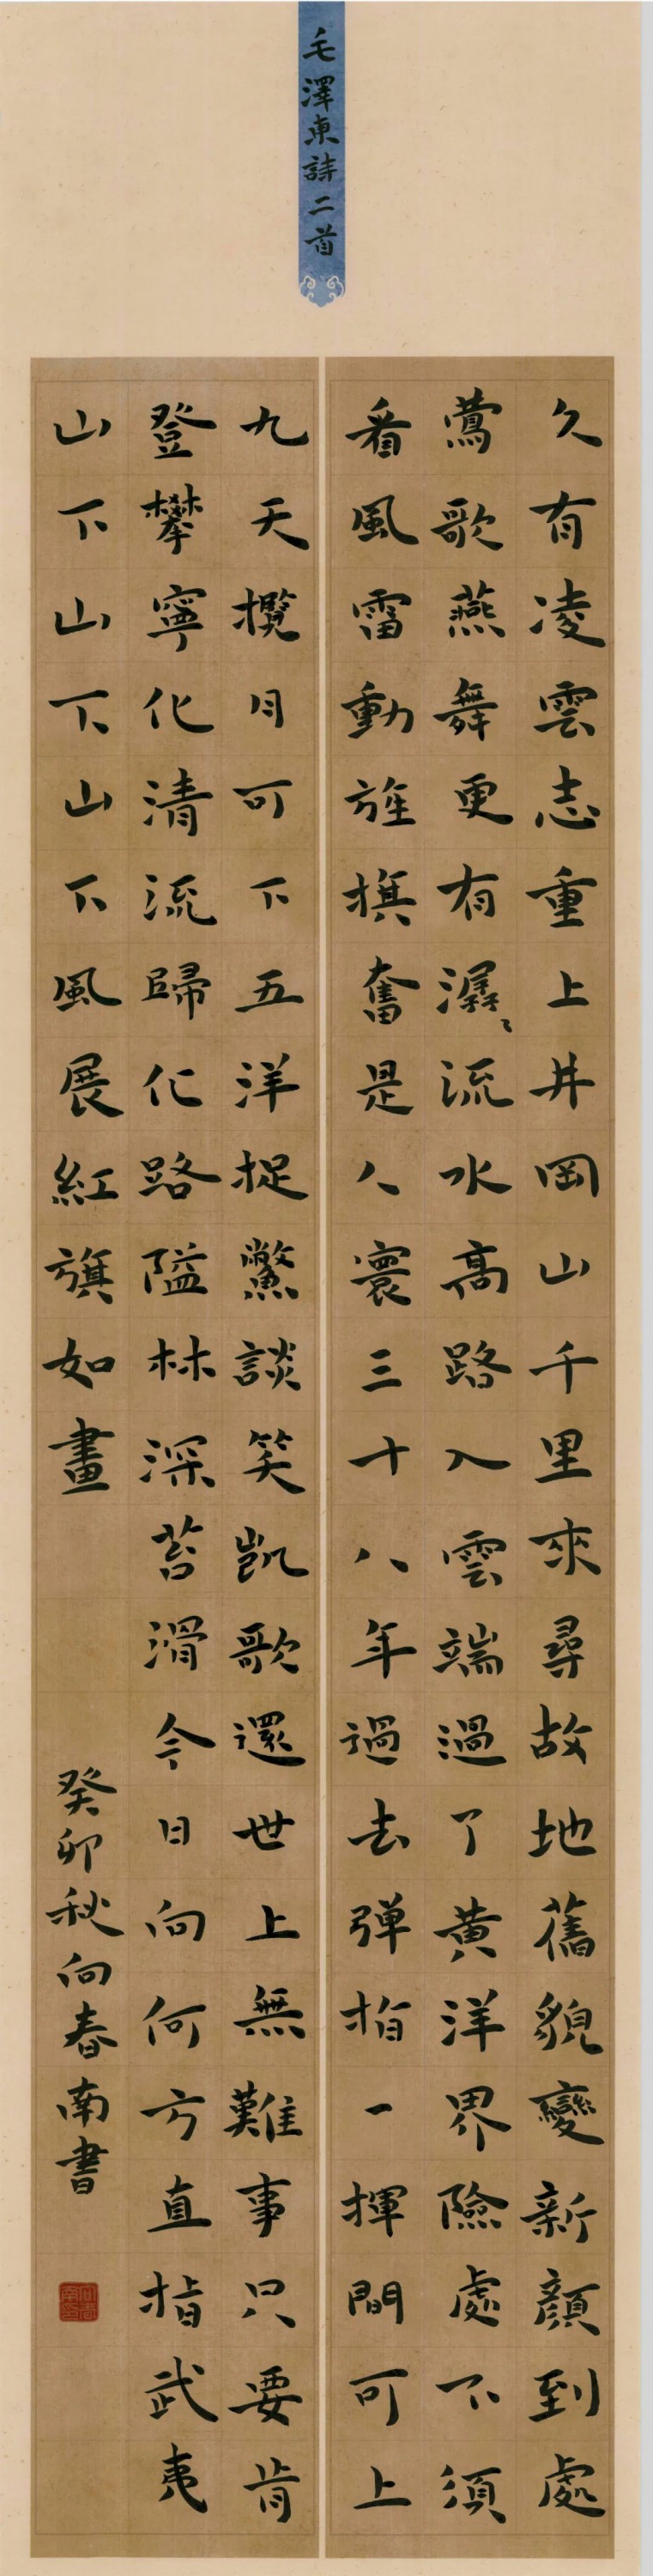 毛澤東詩二首
久有凌雲志重上井岡山千里來尋故地舊貌變新顏到處
鶯歌燕舞更有潺〻流水高路入雲端過了黃洋界險處不須
看風雷動旌旗奮是人寰三十八年過去弹指一揮間可上
九天攬月可下五洋捉鱉談笑凱歌還世上無難事只要肯
登攀寧化清流歸化路隘林深苔滑今日向何方直指武夷
山下山下山下風展紅旗如畫
癸卯秋向春南書